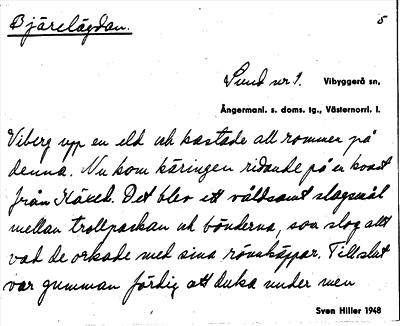 Bjärelägdan.
5
Sund nr 1. Vibyggerå sn,
Ångermanl. s. doms. tg., Västernorrl. l.
Viberg upp en eld och kastade all rommer på
denna. Nu kom käringen ridande på en kvast
från Häxed. Det blev ett våldsamt slagsmål
mellan trollpackan och bönderna, som slog allt
vad de orkade med sina rönnkäppar. Till slut
var gumman färdig att duka under men
Sven Hiller 1948